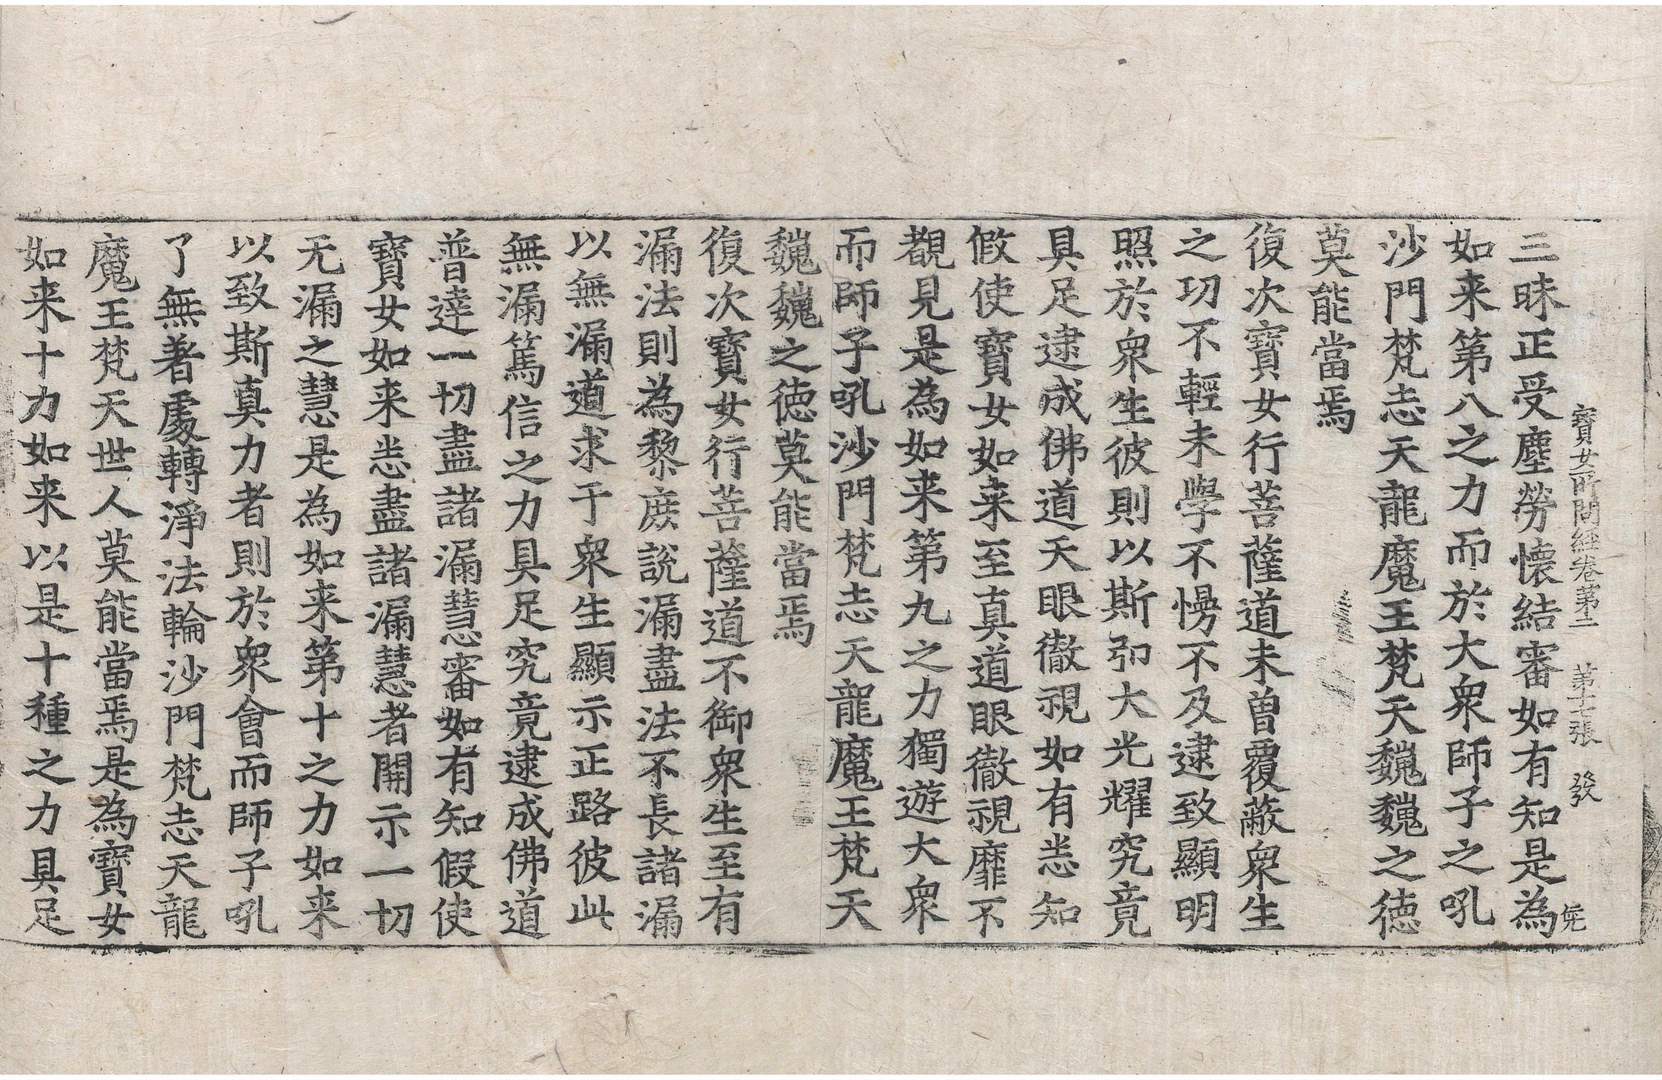 寶女所問經卷第二　第十七張　發
三昧正受塵勞懷結審如有知是為
如来第八之力而於大衆師子之吼
沙門梵志天龍魔王梵天巍巍之德
莫能當焉
復次寶女行菩薩道未曽覆蔽衆生
之功不輕未學不慢不及逮致顯明
照於衆生彼則以斯弘大光耀究竟
具足逮成佛道天眼徹視如有悉知
假使寶女如来至真道眼徹視靡不
覩見是為如来第九之力獨遊大衆
而師子吼沙門梵志天龍魔王梵天
巍巍之徳莫能當焉
復次寶女行菩薩道不御衆生至有
漏法則為黎庶說漏盡法不長諸漏
以無漏道求于衆生顯示正路彼此
無漏篤信之力具足究竟逮成佛道
普達一切盡諸漏慧審如有知假使
寶女如来悉盡諸漏慧者開示一切
无漏之慧是為如来第十之力如来
以致斯真力者則於衆會而師子吼
了無著處轉淨法輪沙門梵志天龍
魔王梵天世人莫能當焉是為寶女
如来十力如来以是十種之力具足